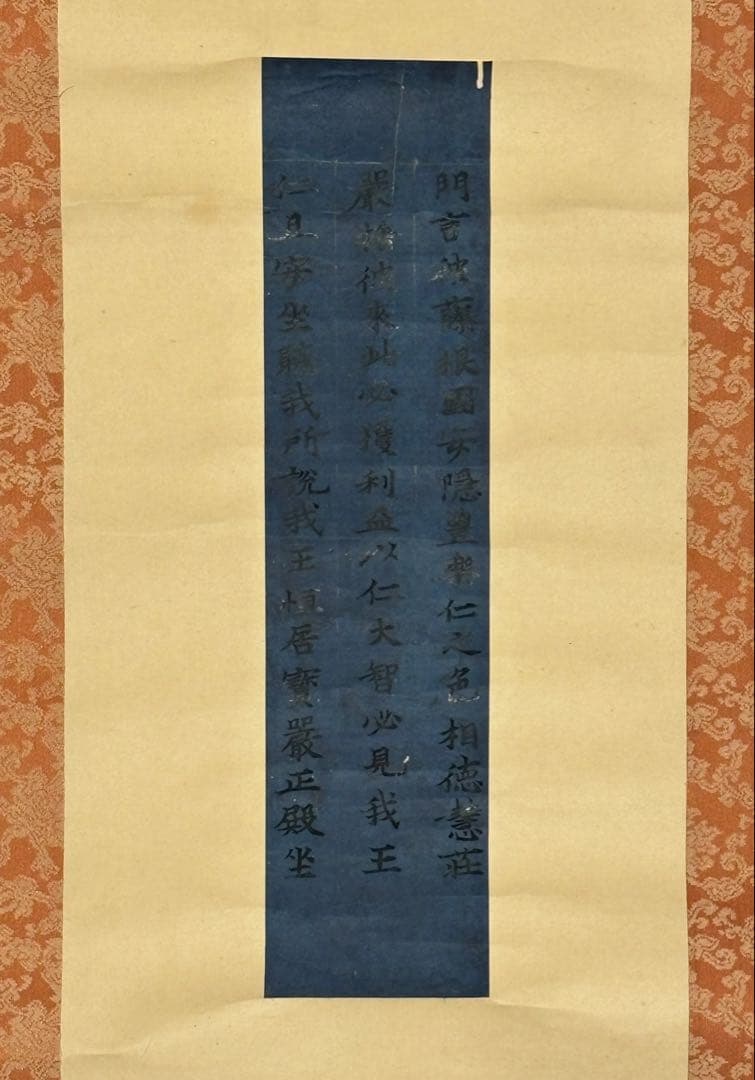 門言彼蘇垠國安隱豊樂仁之色相徳慧莊
嚴揔從來此必獲利益以仁大智必見我王
仁且安坐聽我所說我王恒居寳嚴正殿坐